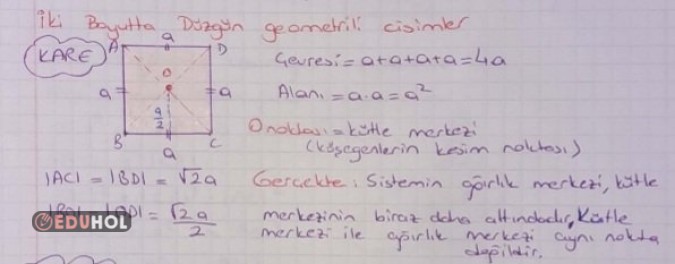 İki Boyutta Düzgün geometrili cisimler
KARE
A a D
Çevresi = a+a+a+a = 4a
a O a
Alanı = a.a = a²
a/2
O noktası = kütle merkezi
B a C
(köşegenlerin kesim noktası)
|AC| = |BD| = √2a
Gerçekte: Sistemin ağırlık merkezi, kütle
= √2a/2
merkezinin biraz daha altındadır, Kütle
merkezi ile ağırlık merkezi aynı nokta
değildir.
EDUHOL